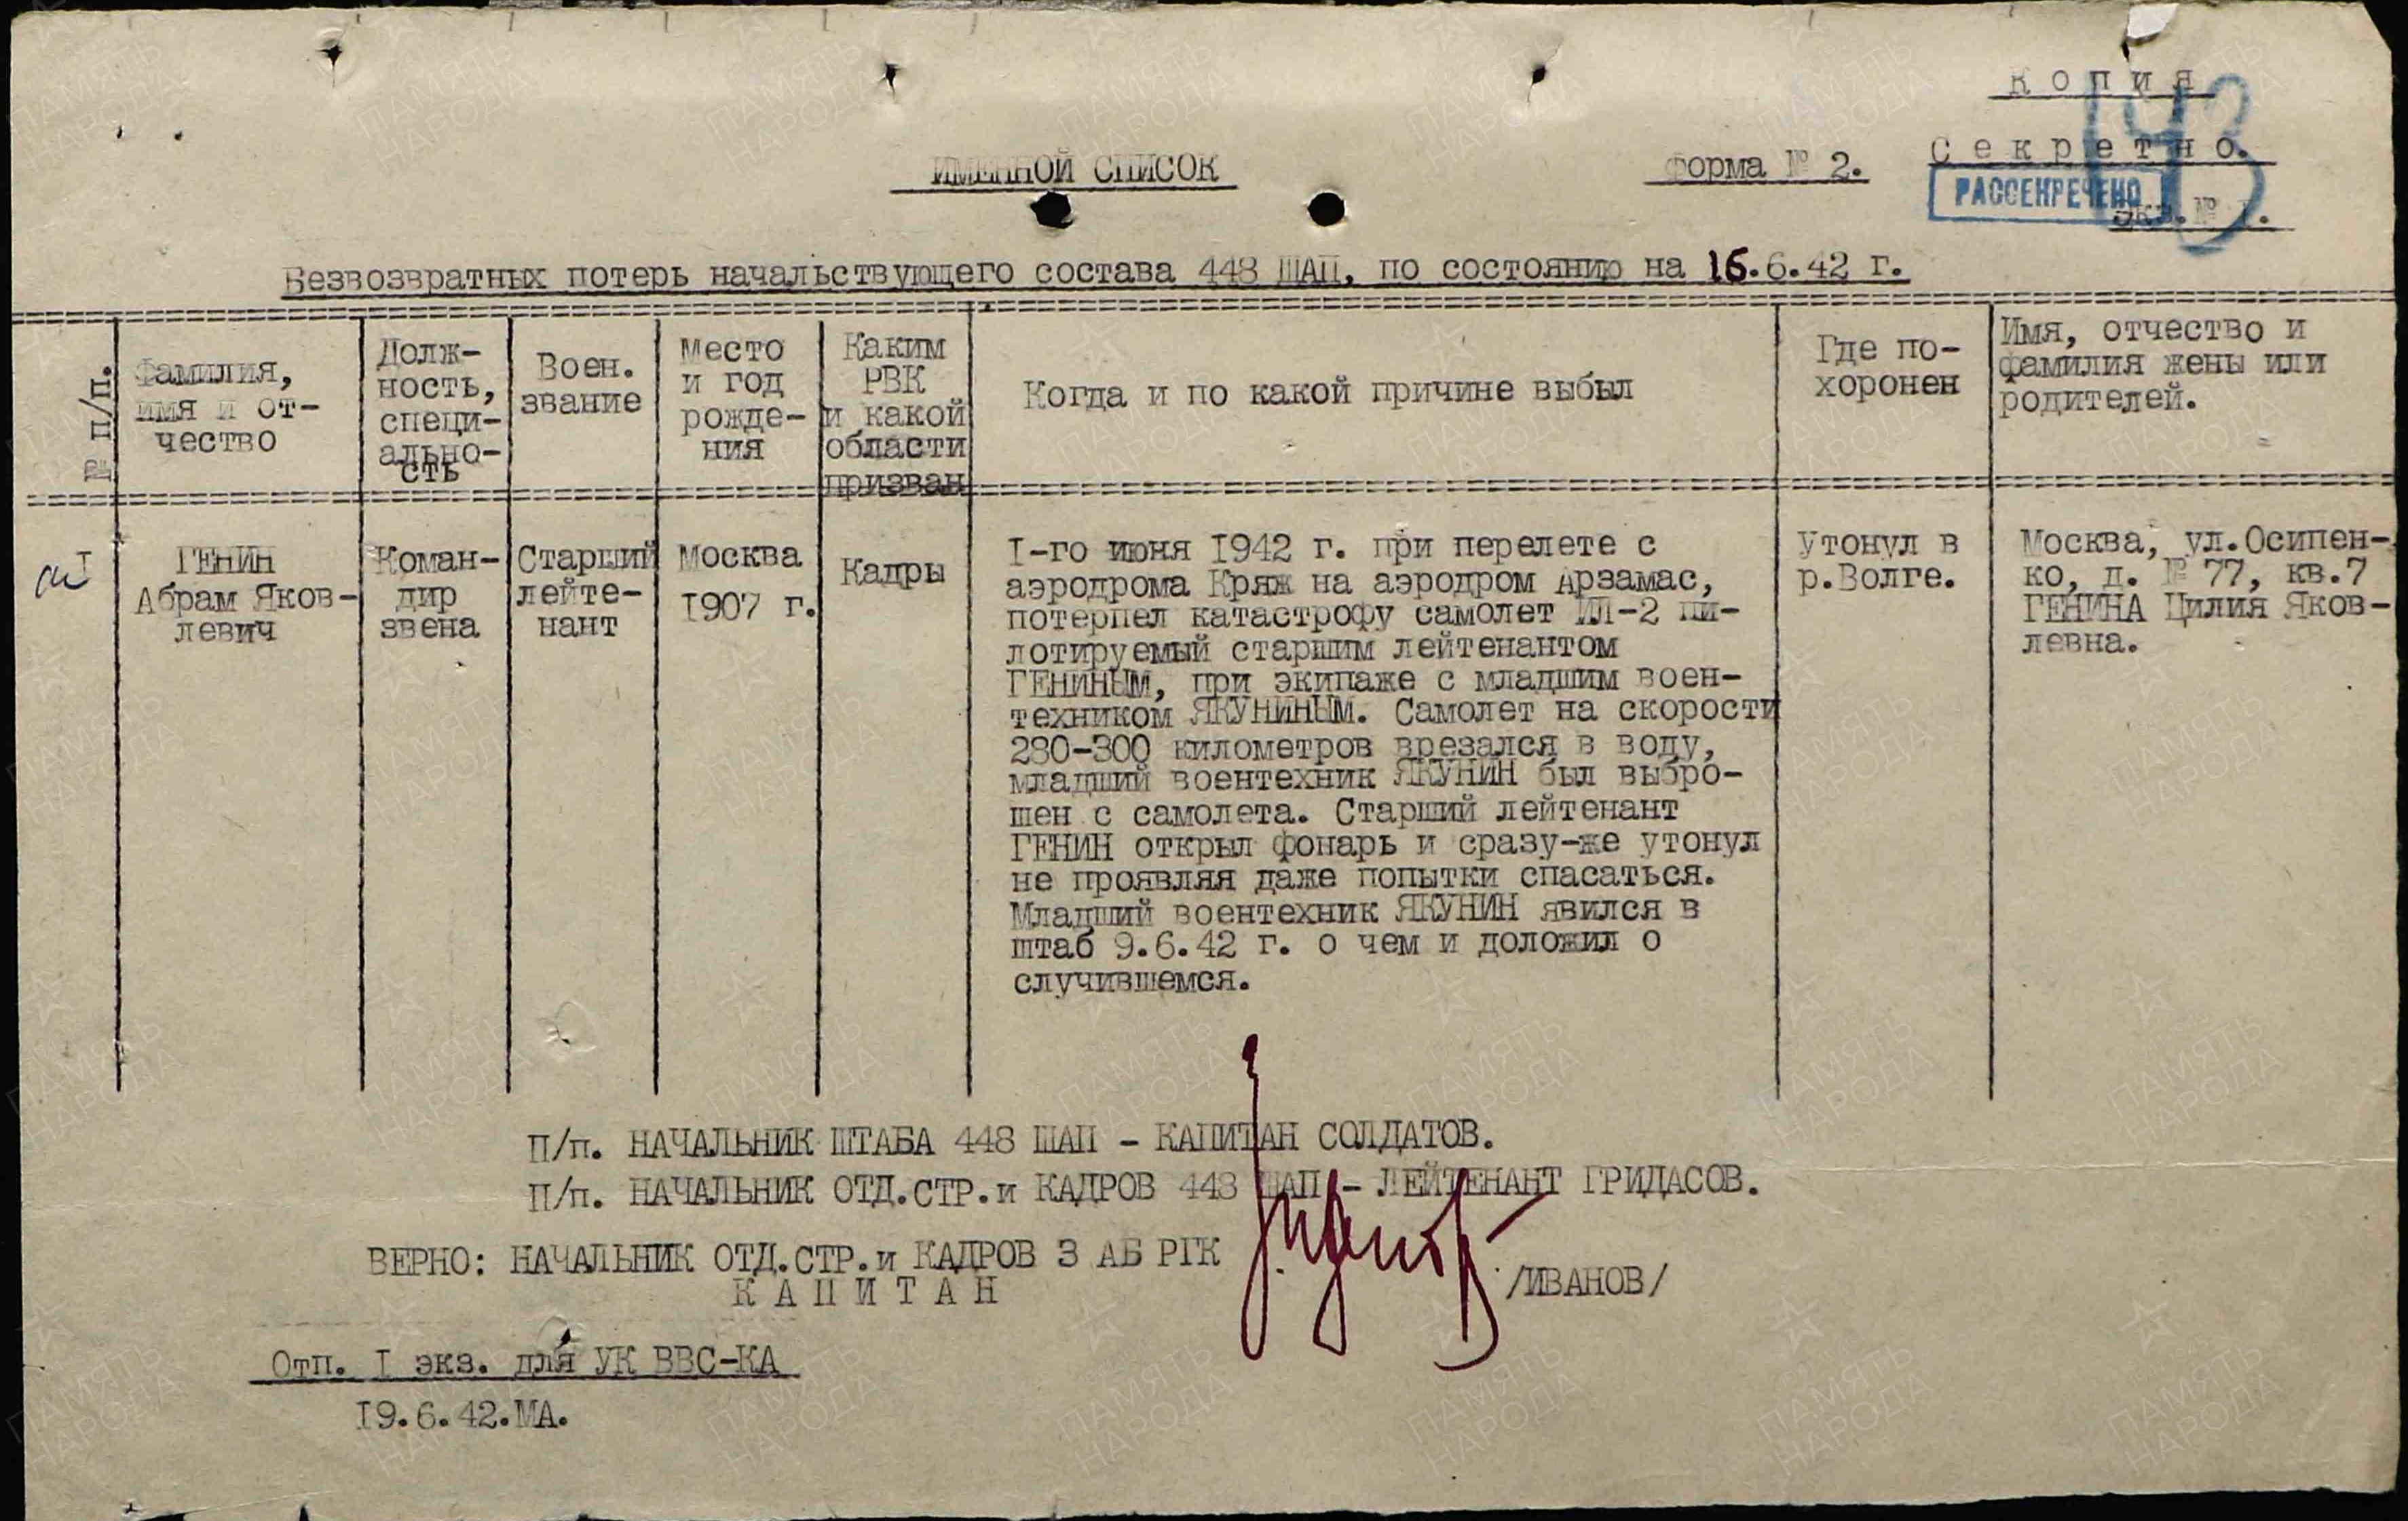 Копия
Секретно.
РАССЕКРЕЧЕНО
Экз.№ 1.
ИМЕННОЙ СПИСОК
Форма № 2.
Безвозвратных потерь начальствующего состава 448 ШАП, по состоянию на 16.6.42 г.
№ п/п.
Фамилия,
имя и от-
чество
Долж-
ность,
специ-
ально-
сть
Воен.
звание
Место
и год
рожде-
ния
Каким
РВК
и какой
области
призван
Когда и по какой причине выбыл
Где по-
хоронен
Имя, отчество и
фамилия жены или
родителей.
I
ГЕНИН
Абрам Яков-
левич
Коман-
дир
звена
Старший
лейте-
нант
Москва
1907 г.
Кадры
I-го июня 1942 г. при перелете с
аэродрома Кряж на аэродром Арзамас,
потерпел катастрофу самолет ИЛ-2 пи-
лотируемый старшим лейтенантом
ГЕНИНЫМ, при экипаже с младшим воен-
техником ЯКУНИНЫМ. Самолет на скорости
280-300 километров врезался в воду,
младший воентехник ЯКУНИН был выбро-
шен с самолета. Старший лейтенант
ГЕНИН открыл фонарь и сразу-же утонул
не проявляя даже попытки спасаться.
Младший воентехник ЯКУНИН явился в
штаб 9.6.42 г. о чем и доложил о
случившемся.
Утонул в
р.Волге.
Москва, ул.Осипен-
ко, д. № 77, кв.7
ГЕНИНА Цилия Яков-
левна.
П/п. НАЧАЛЬНИК ШТАБА 448 ШАП - КАПИТАН СОЛДАТОВ.
П/п. НАЧАЛЬНИК ОТД.СТР.и КАДРОВ 448 ШАП - ЛЕЙТЕНАНТ ГРИДАСОВ.
ВЕРНО: НАЧАЛЬНИК ОТД.СТР.и КАДРОВ 3 АБ РГК
КАПИТАН
/ИВАНОВ/
Отп. I экз. для УК ВВС-КА
19.6.42.МА.
ПАМЯТЬ
НАРОДА